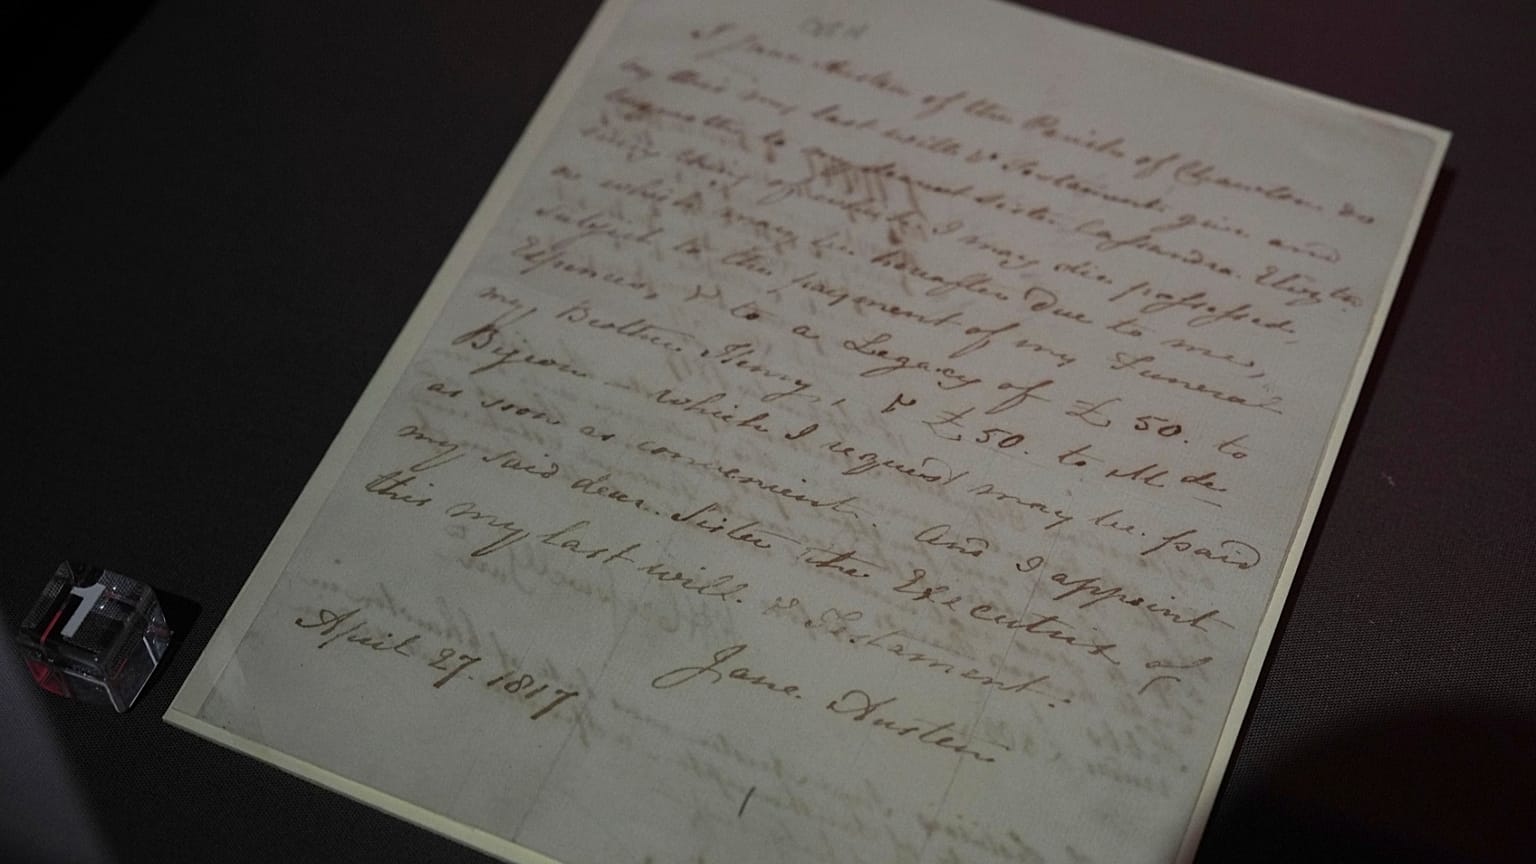 I Jane Austen of the Parish of Chawton do
by this my last Will & Testament give and
bequeath to my dearest Sister Cassandra Elizth
every thing of which I may die possessed,
or which may be hereafter due to me,
subject to the payment of my Funeral
Expences, & to a Legacy of £50. to
my Brother Henry, & £50. to M de
Bigeon - which I request may be paid
as soon as convenient. And I appoint
my said dear Sister the Executrix of
this my last will & Testament.
Jane Austen
April 27. 1817
1
1